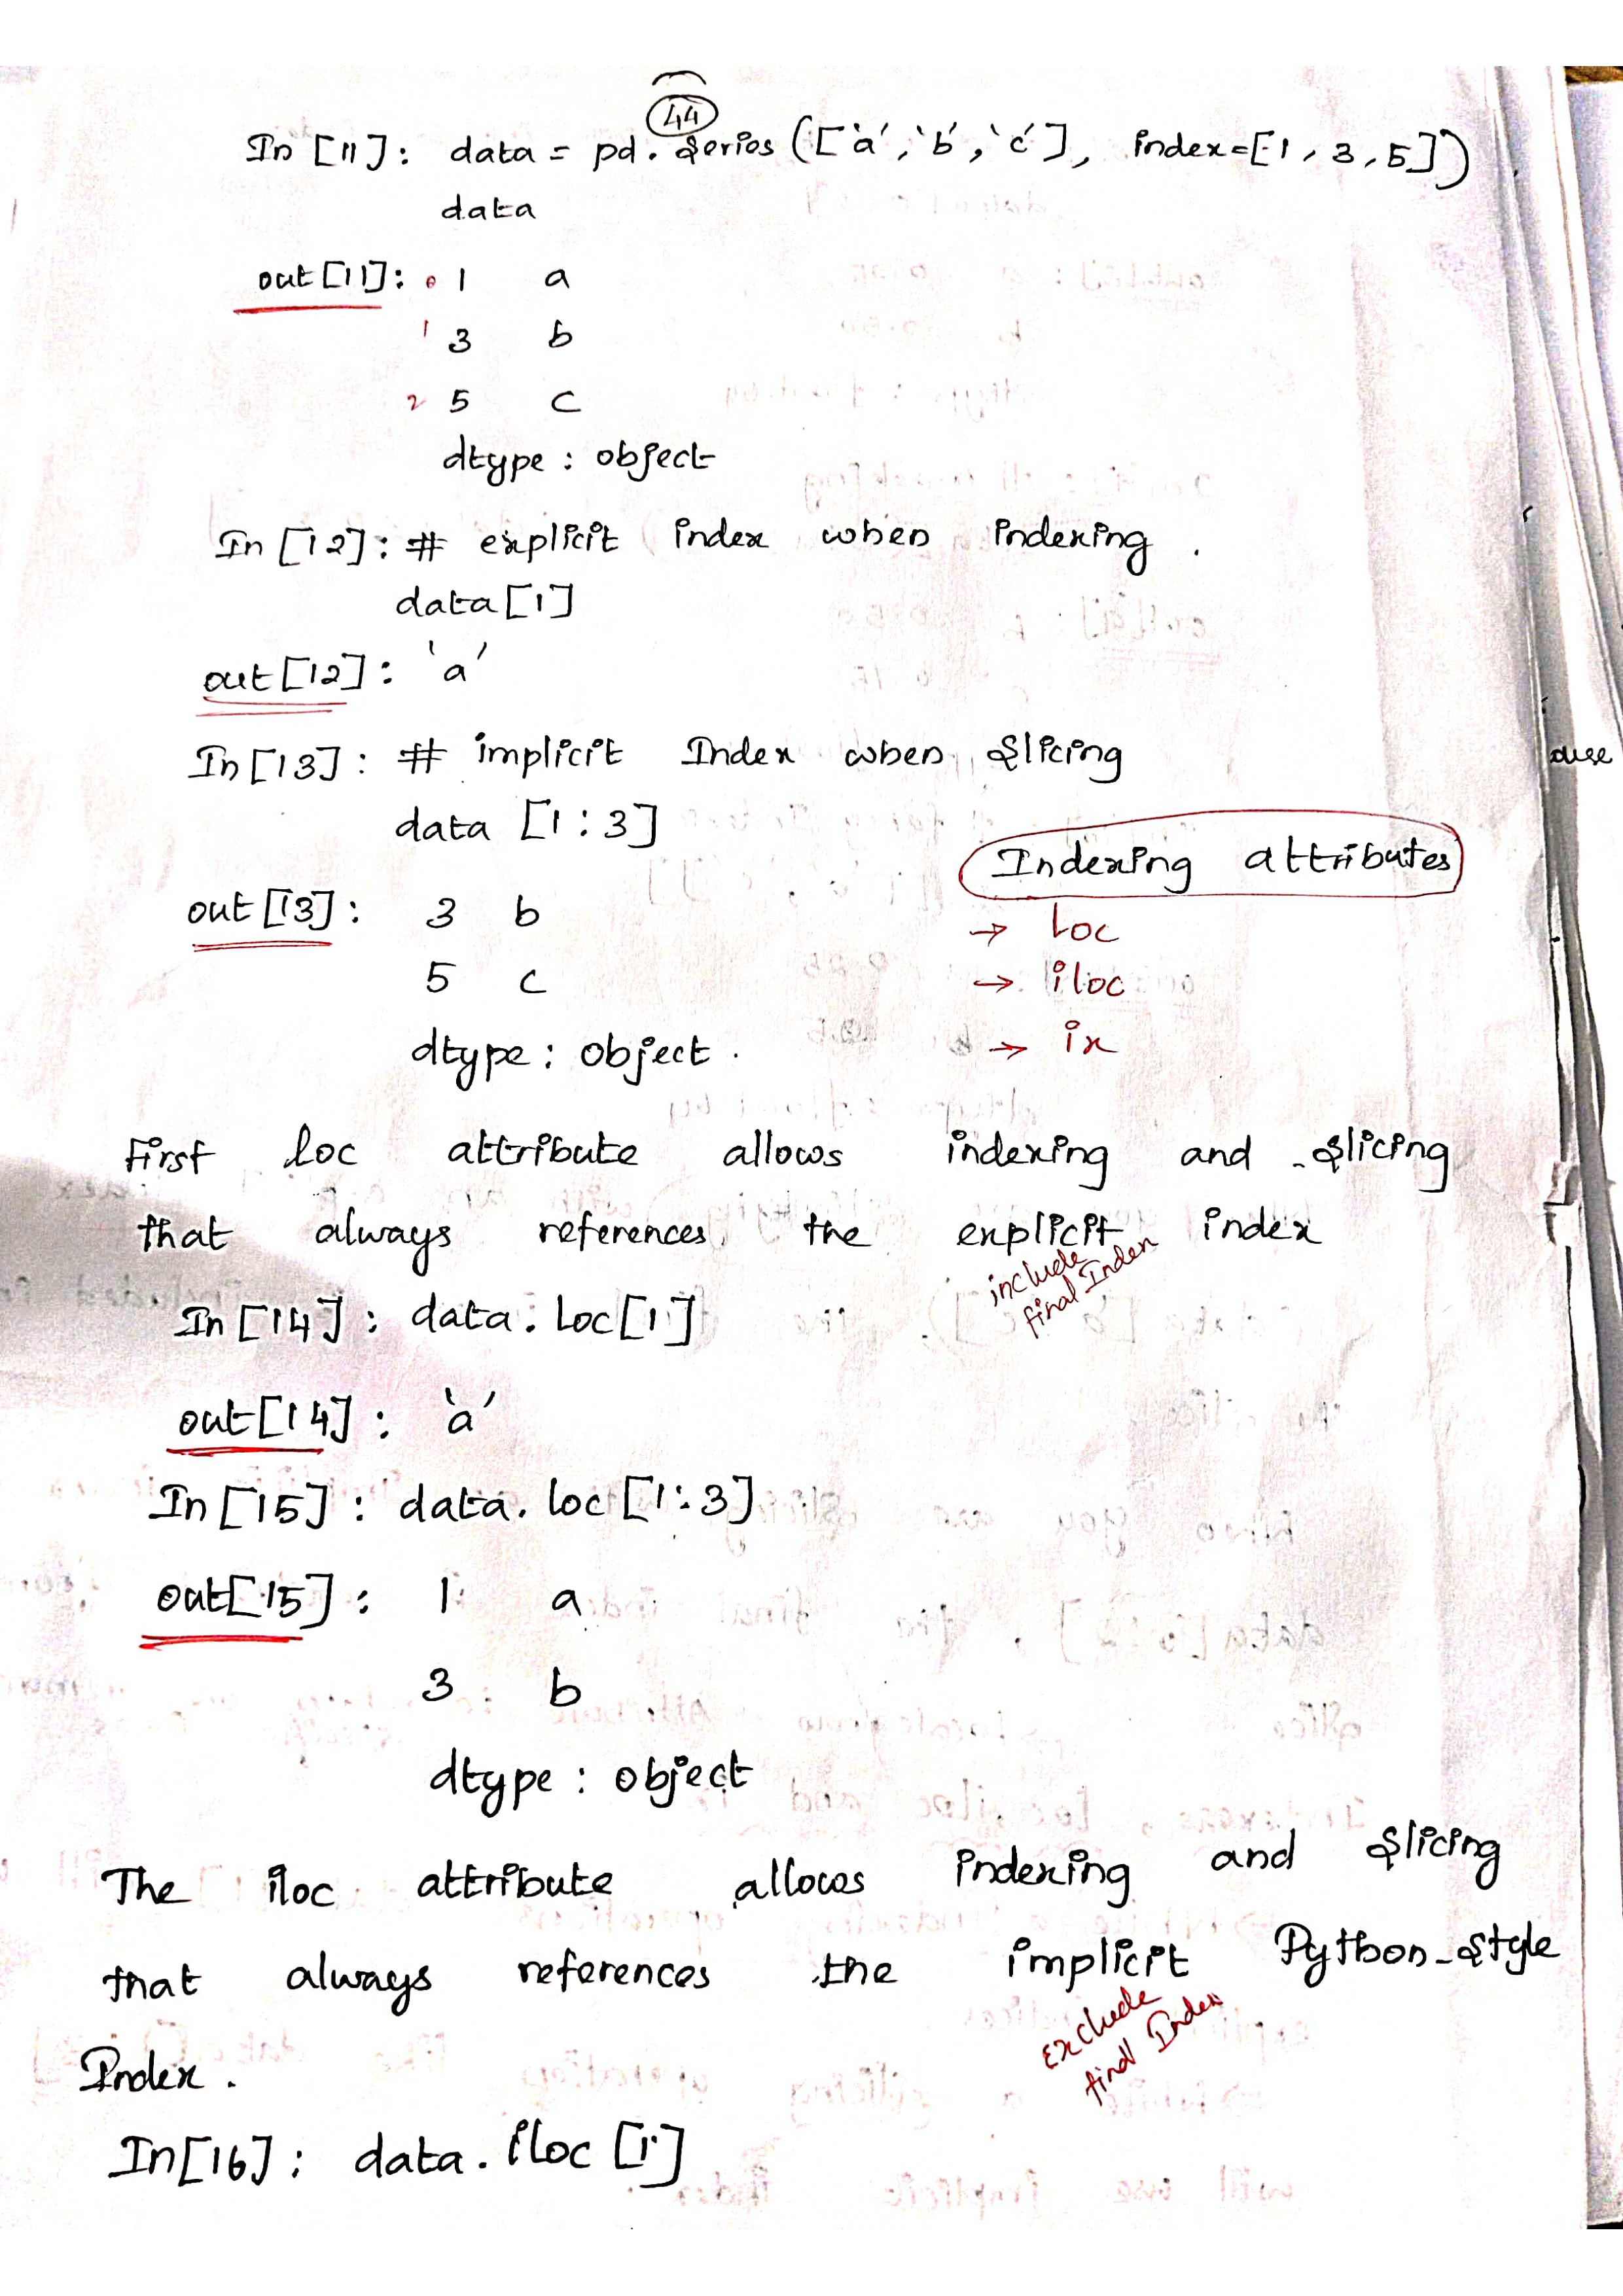 44
In [11]: data = pd.Series(['a', 'b', 'c'], index=[1, 3, 5])
data
out[11]: 0 1 a
1 3 b
2 5 c
dtype : object
In [12]: # explicit index when indexing.
data[1]
out[12]: 'a'
In [13]: # implicit Index when slicing
data [1:3]
out[13]: 3 b
5 c
dtype : object.
Indexing attributes
→ Loc
→ iloc
→ ix
First loc attribute allows indexing and slicing
that always references the explicit index
include
final Index
In [14]: data. Loc[1]
out[14]: 'a'
In [15]: data. loc [1:3]
out[15]: 1 a
3 b
dtype : object
The iloc attribute allows indexing and slicing
that always references the implicit Python-style
exclude
final Index
Index.
In[16]: data. iloc [1]